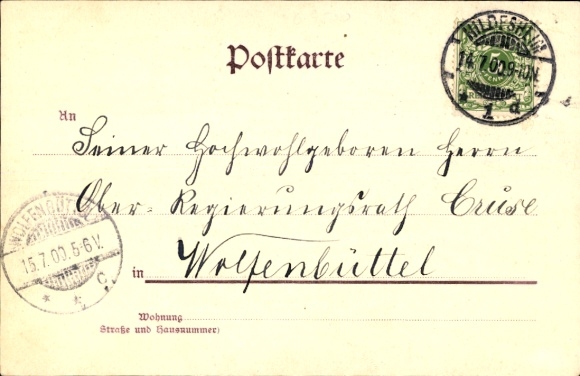 Postkarte
HILDESHEIM
14.7.00.9-10N.
* 1 d
An
Seiner Hochwohlgeboren Herrn
Ober-Regierungsrath Cruse
in Wolfenbüttel
WOLFENBÜTTEL
15.7.00.5-6V.
* * c.
Wohnung
(Straße und Hausnummer)